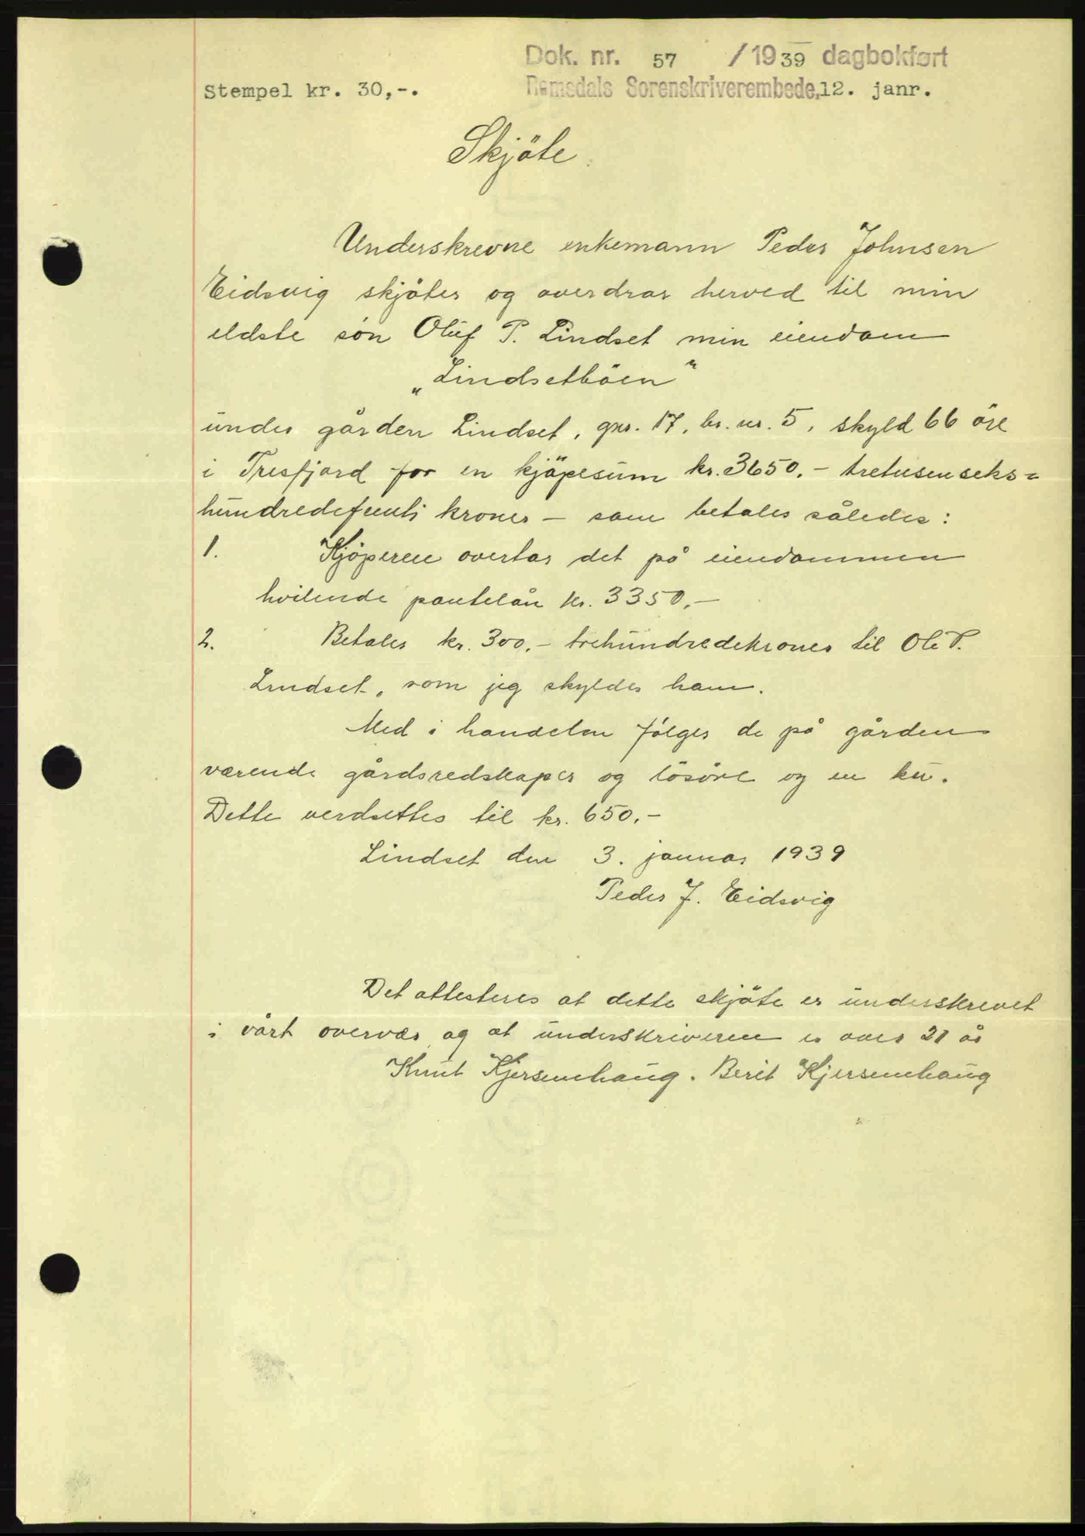 Dok. nr. 57 / 1939 dagbokført
Stempel kr. 30,-. Romsdals Sorenskriverembede, 12. janr.
Skjöte.
Underskrevne enkemann Peder Johnsen
Eidsvig skjöter og overdrar herved til min
eldste sön Oluf P. Lindset min eiendom
„Lindsetböen"
under gården Lindset, gnr. 17, br. nr. 5, skyld 66 öre
i Tresfjord for en kjöpesum kr. 3650.- tretusenseks=
hundredefemti kroner - som betales således:
1. Kjöperen overtar det på eiendommen
hvilende pantelån kr. 3350.-
2. Betales kr. 300.- trehundredekroner til Ole P.
Lindset, som jeg skylder ham.
Med i handelen fölger de på gården
værende gårdsredskaper og lösöre og en ku.
Dette verdsettes til kr. 650.-
Lindset den 3. januar 1939
Peder J. Eidsvig
Det attesteres at dette skjöte er underskrevet
i vårt overvær og at underskriveren er over 21 år
Knut Kjersemhaug. Berit Kjersemhaug